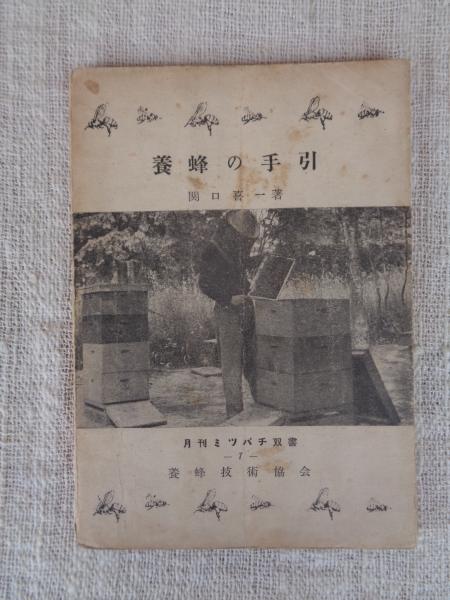 養蜂の手引
関口喜一著
月刊ミツバチ双書
—1—
養蜂技術協会